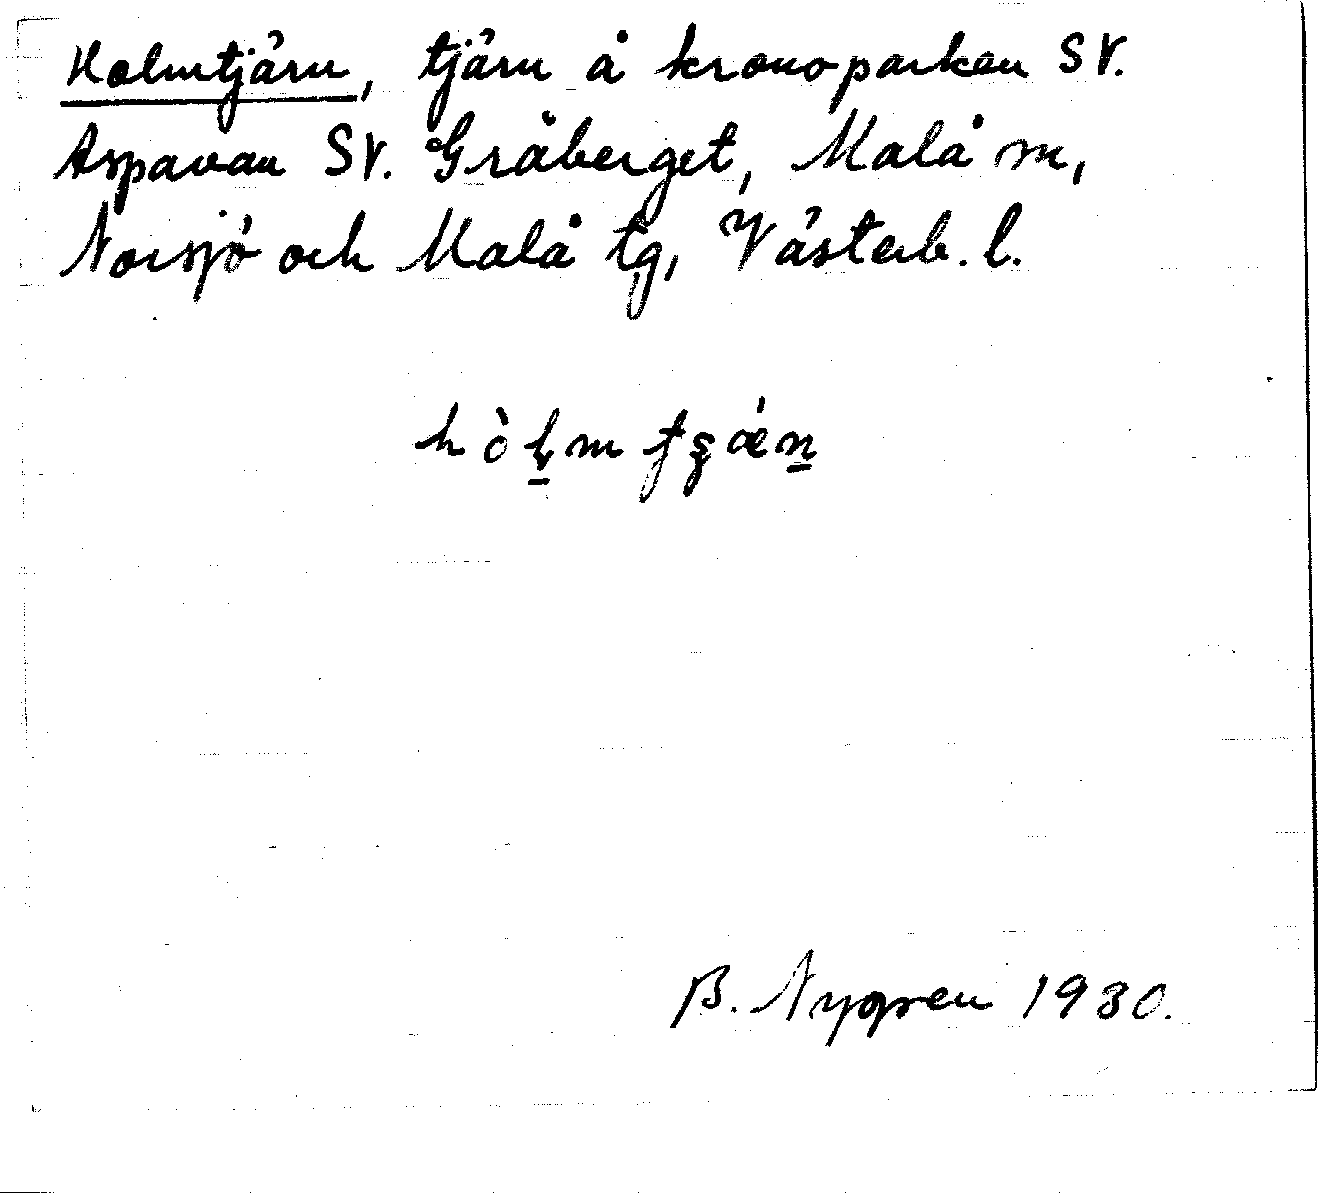 Holmtjärn, tjärn å kronoparken SV.
Aspavan SV. Gråberget, Malå sn,
Norsjö och Malå tg, Västerb. l.
B. Nygren 1930.